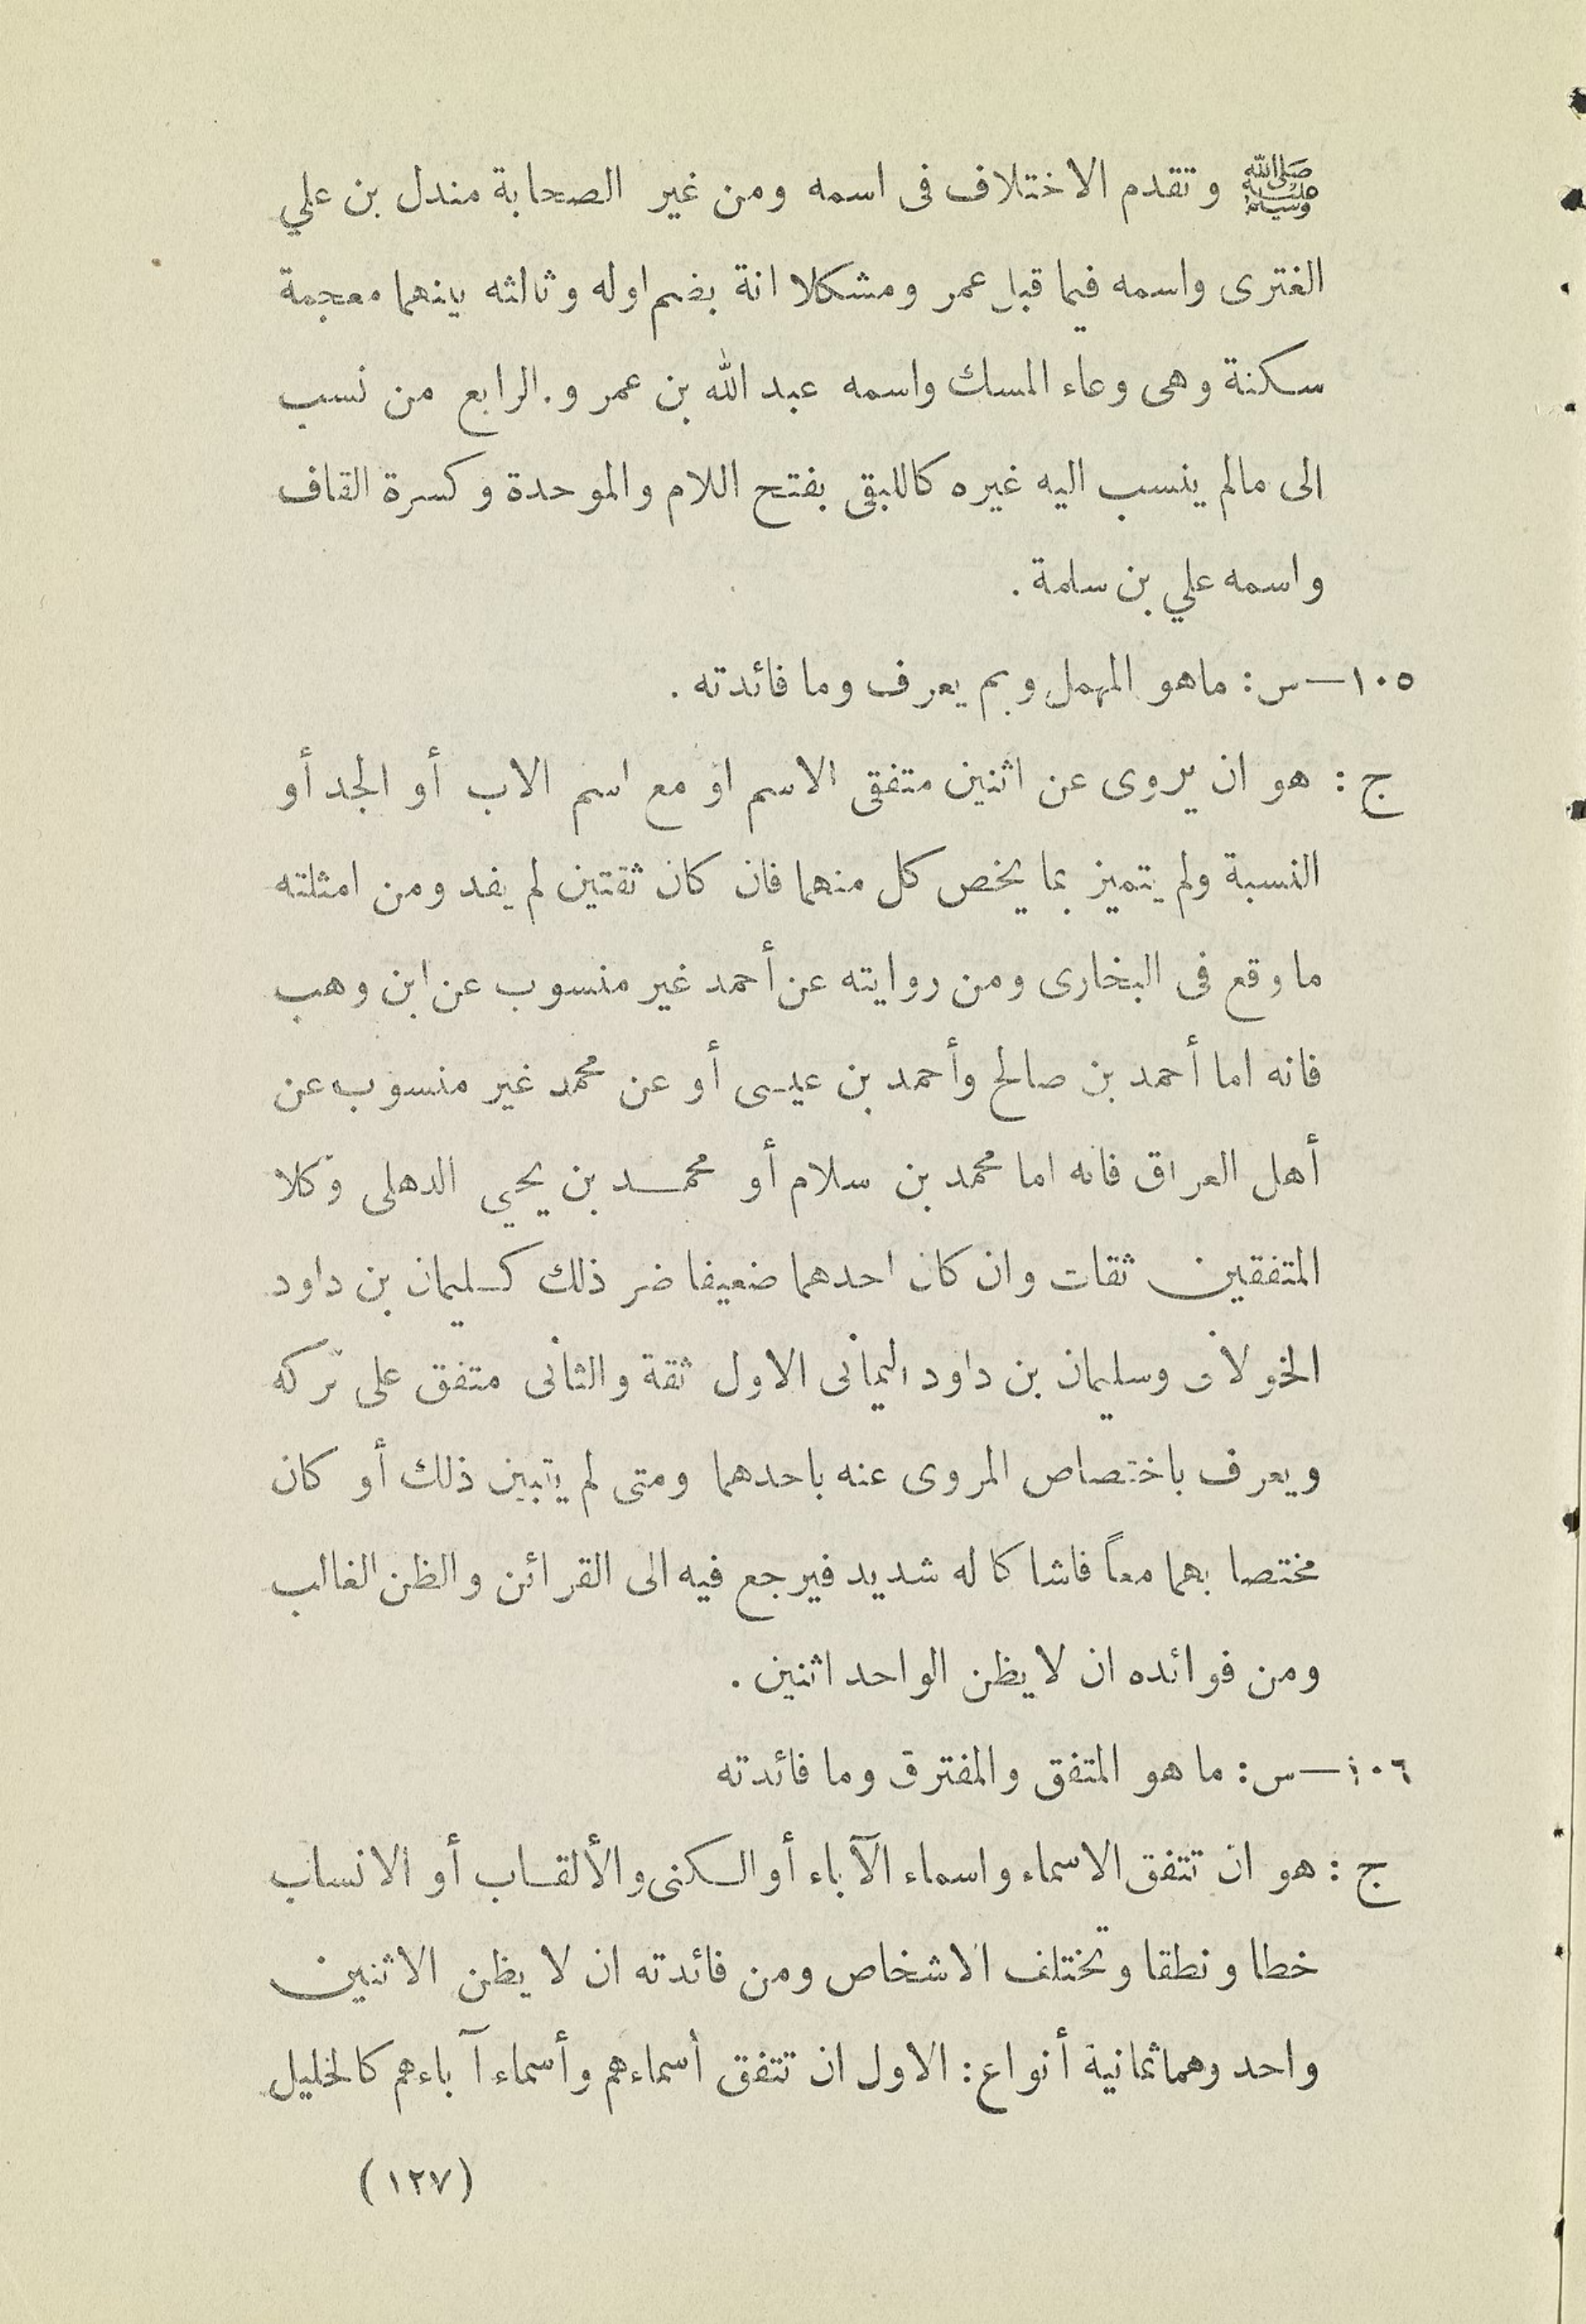 ﷺ وتقدم الاختلاف فى اسمه ومن غير الصحابة مندل بن علي
الغترى واسمه فيما قبل عمر ومشكلا انة بضم اوله وثالثه بينهما معجمة
سكنة وهى وعاء المسك واسمه عبد الله بن عمر و.الرابع من نسب
الى مالم ينسب اليه غيره كاللبقى بفتح اللام والموحدة وكسرة القاف
واسمه علي بن سلمة .
١٠٥—س: ماهو المهمل وبم يعرف وما فائدته .
ج : هو ان يروى عن اثنين متفقى الاسم او مع اسم الاب أو الجد أو
النسبة ولم يتميز بما يخص كل منهما فان كان ثقتين لم يفد ومن امثلته
ما وقع فى البخارى ومن روايته عن أحمد غير منسوب عن ابن وهب
فانه اما أحمد بن صالح وأحمد بن عيسى أو عن محمد غير منسوب عن
أهل العراق فانه اما محمد بن سلام أو محمد بن يحي الدهلى وكلا
المتفقين ثقات وان كان احدهما ضعيفا ضر ذلك كسليمان بن داود
الخولانى وسليمان بن داود اليمانى الاول ثقة والثانى متفق على تركه
ويعرف باختصاص المروى عنه باحدهما ومتى لم يتبين ذلك أو كان
مختصا بهما معاً فاشا كا له شديد فيرجع فيه الى القرائن والظن الغالب
ومن فوائده ان لا يظن الواحد اثنين .
١٠٦—س: ما هو المتفق والمفترق وما فائدته
ج : هو ان تتفق الاسماء واسماء الآباء أو الكنى والألقاب أو الانساب
خطا ونطقا وتختلف الاشخاص ومن فائدته ان لا يظن الاثنين
واحد وهما ثمانية أنواع: الاول ان تتفق أسماءهم وأسماء آباءهم كالخليل
(١٢٧)